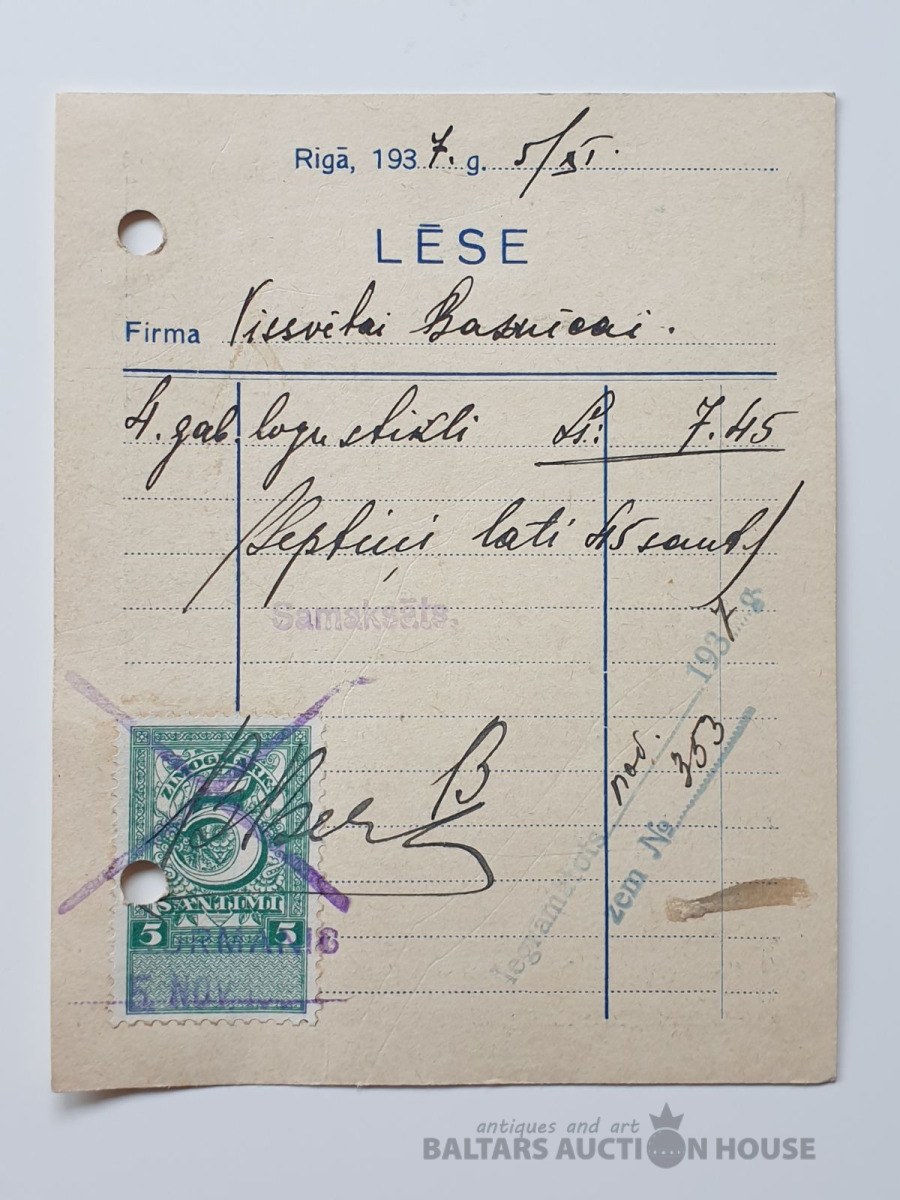 Rīgā, 1937. g. 5/XI.
LĒSE
Firma Vissvētai Baznīcai.
4. gab. logu stikli Ls: 7.45
/Septiņi lati 45 sant/
Samaksāts.
Iegrāmatots nov. 1937 g
zem № 353
ZĪMOGMARKA
5
SANTIMI
5 5
5 NOV
antiques and art
BALTARS AUCTION HOUSE